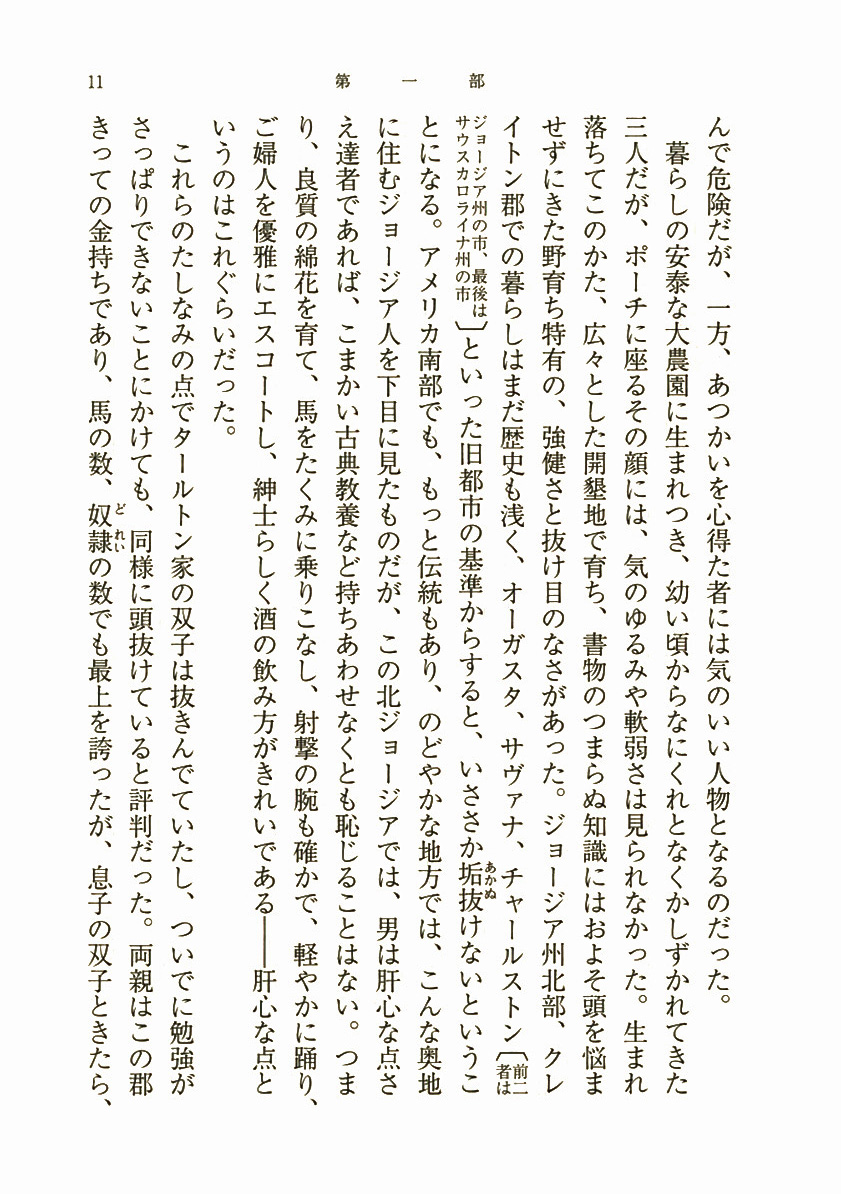 11
第一部
んで危険だが、一方、あつかいを心得た者には気のいい人物となるのだった。
暮らしの安泰な大農園に生まれつき、幼い頃からなにくれとなくかしずかれてきた
三人だが、ポーチに座るその顔には、気のゆるみや軟弱さは見られなかった。生まれ
落ちてこのかた、広々とした開墾地で育ち、書物のつまらぬ知識にはおよそ頭を悩ま
せずにきた野育ち特有の、強健さと抜け目のなさがあった。ジョージア州北部、クレ
イトン郡での暮らしはまだ歴史も浅く、オーガスタ、サヴァナ、チャールストン〔前二者は
ジョージア州の市、最後はサウスカロライナ州の市〕といった旧都市の基準からすると、いささか垢抜けないというこ
とになる。アメリカ南部でも、もっと伝統もあり、のどやかな地方では、こんな奥地
に住むジョージア人を下目に見たものだが、この北ジョージアでは、男は肝心な点さ
え達者であれば、こまかい古典教養など持ちあわせなくとも恥じることはない。つま
り、良質の綿花を育て、馬をたくみに乗りこなし、射撃の腕も確かで、軽やかに踊り、
ご婦人を優雅にエスコートし、紳士らしく酒の飲み方がきれいである――肝心な点と
いうのはこれぐらいだった。
これらのたしなみの点でタールトン家の双子は抜きんでていたし、ついでに勉強が
さっぱりできないことにかけても、同様に頭抜けていると評判だった。両親はこの郡
きっての金持ちであり、馬の数、奴隷の数でも最上を誇ったが、息子の双子ときたら、
あかぬ
どれい